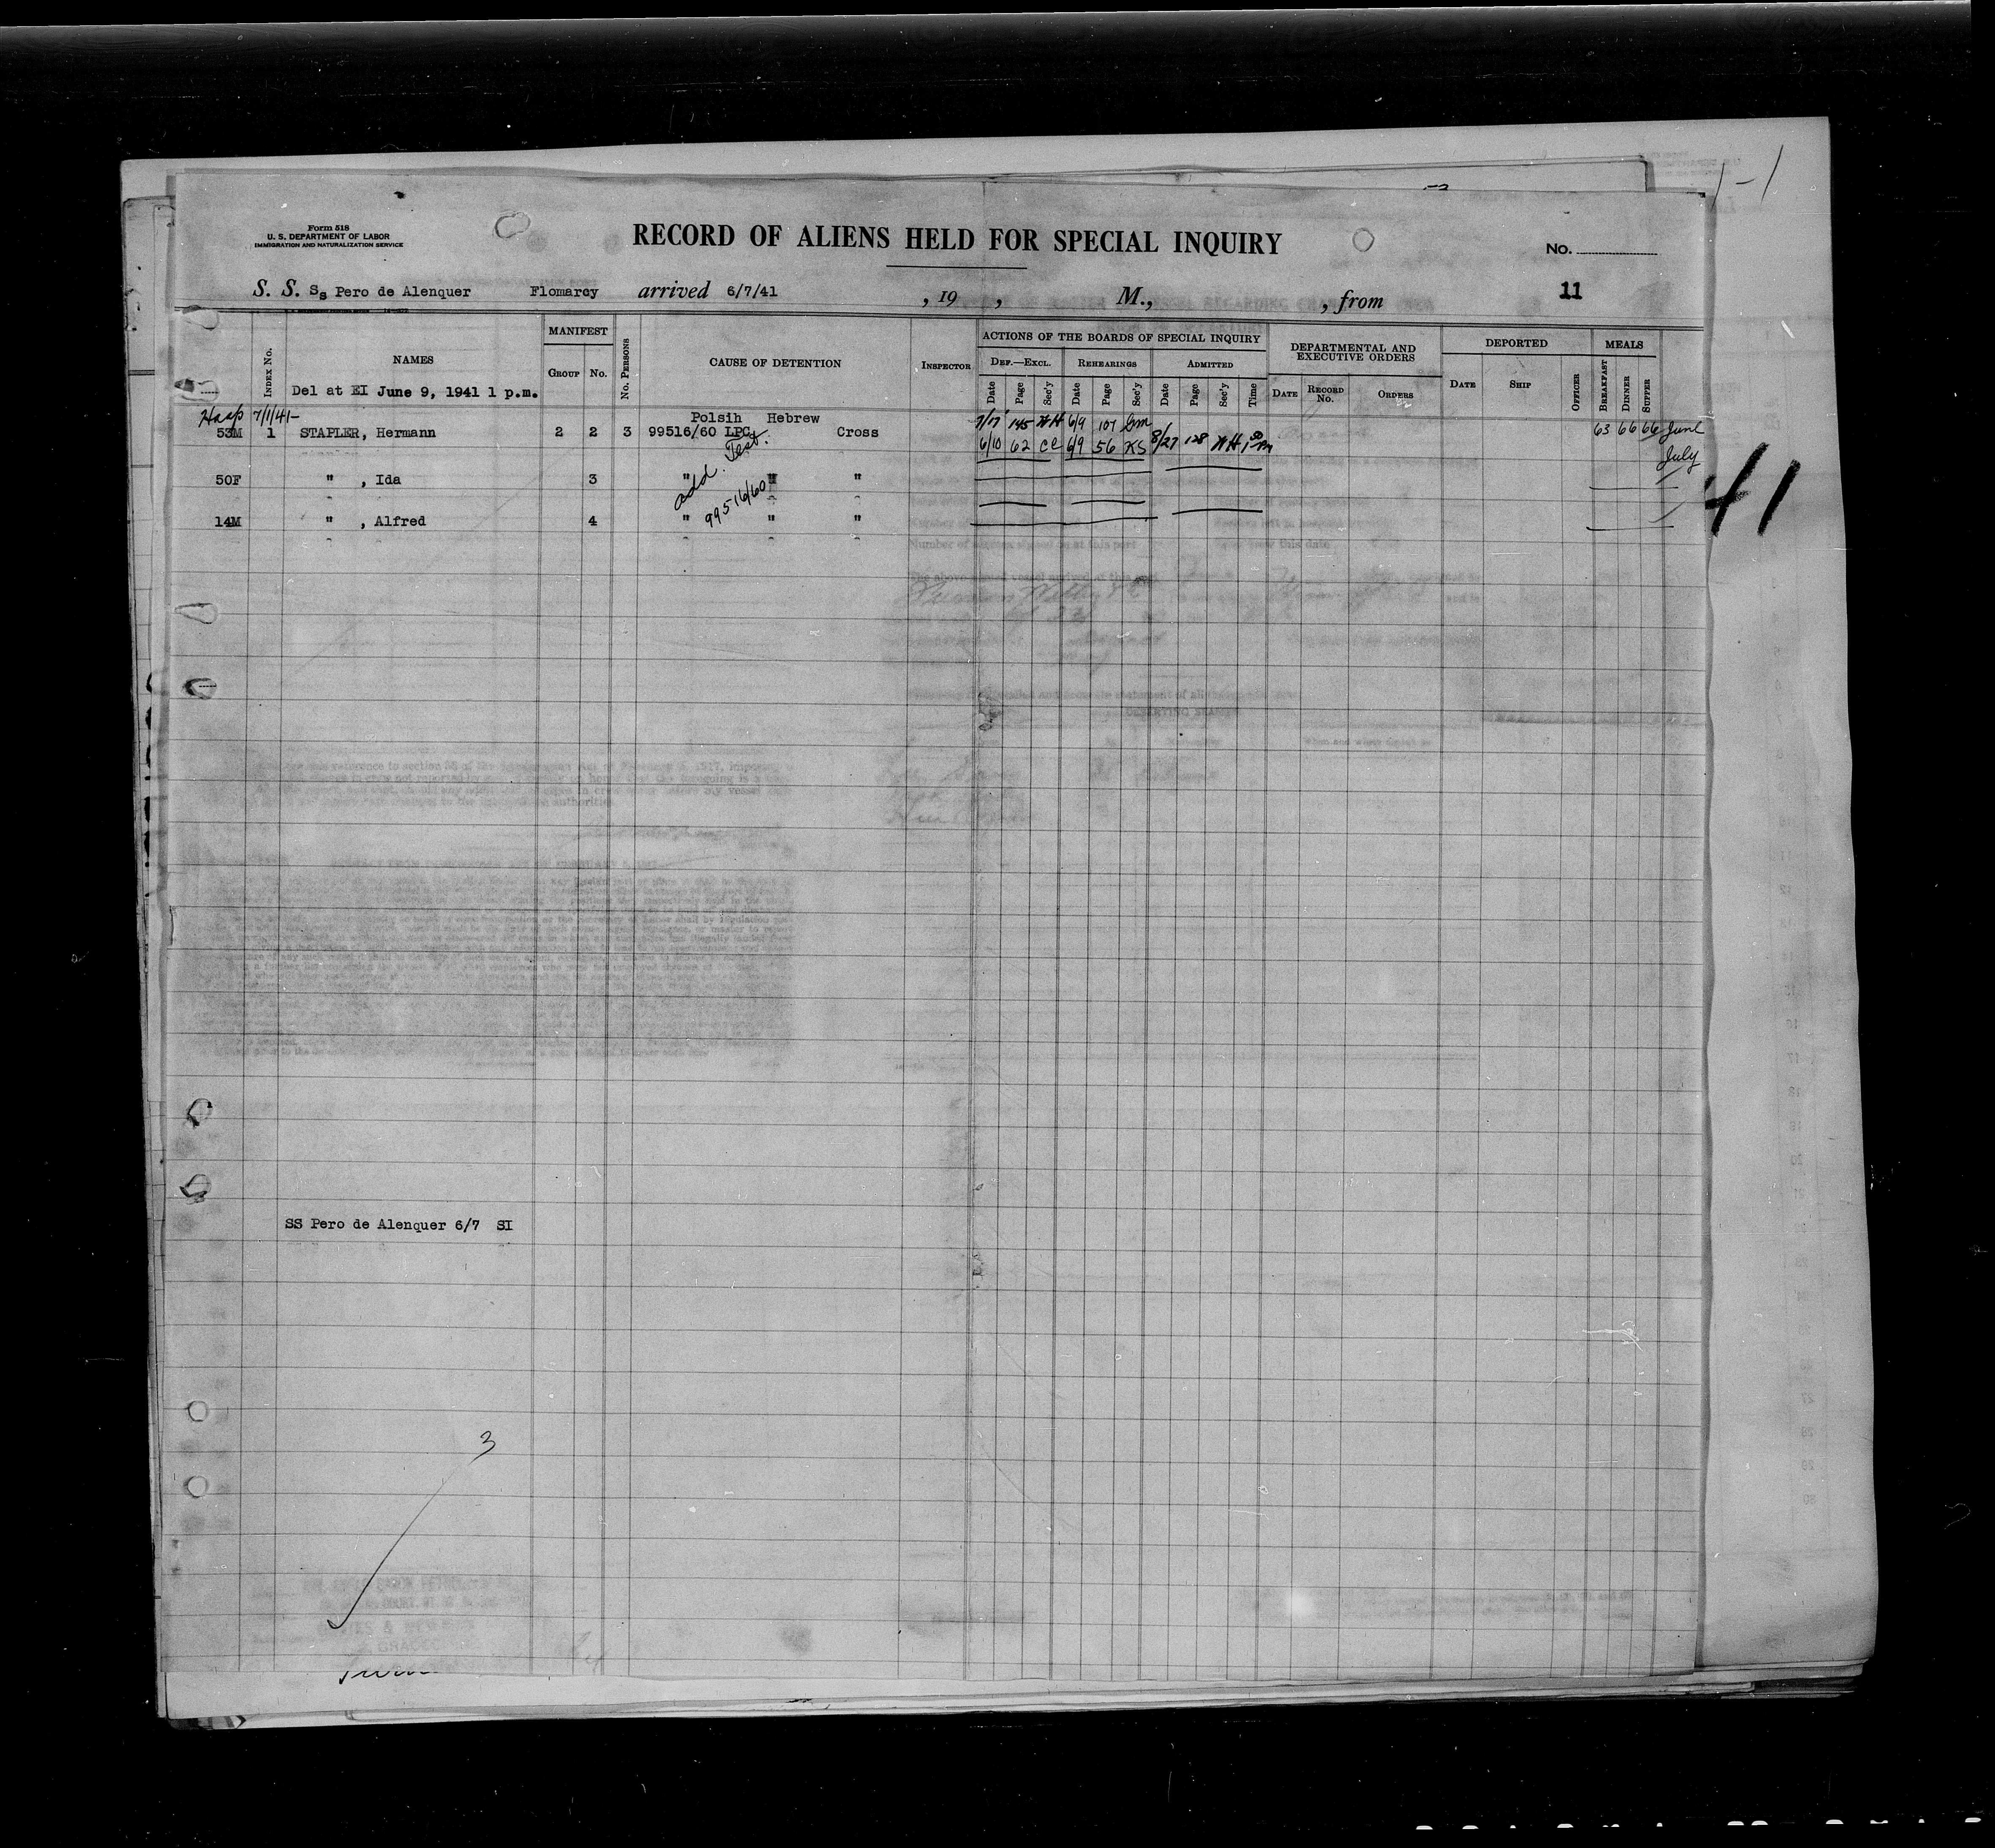 Form 518
U. S. DEPARTMENT OF LABOR
IMMIGRATION AND NATURALIZATION SERVICE
RECORD OF ALIENS HELD FOR SPECIAL INQUIRY
No.
S. S. Ss Pero de Alenquer Flomarcy arrived 6/7/41 , 19 , M., , from 11
INDEX No.
NAMES
MANIFEST
GROUP No.
No. PERSONS
CAUSE OF DETENTION
INSPECTOR
ACTIONS OF THE BOARDS OF SPECIAL INQUIRY
DEF.—EXCL. REHEARINGS ADMITTED
Date Page Sec'y Date Page Sec'y Date Page Sec'y Time
DEPARTMENTAL AND EXECUTIVE ORDERS
DATE RECORD No. ORDERS
DEPORTED
DATE SHIP OFFICER
MEALS
BREAKFAST DINNER SUPPER
Del at EI June 9, 1941 1 p.m.
7/1/41-
Polsih Hebrew
7/17 145 WH 6/9 107
53M 1 STAPLER, Hermann 2 2 3 99516/60 LPC Cross 63 66 66 June
6/10 62 CC 6/9 56 KS 8/27 128 WH
July
add. Test.
99516/60
50F " , Ida 3 " " "
14M " , Alfred 4 " " "
41
1-1
SS Pero de Alenquer 6/7 SI
3